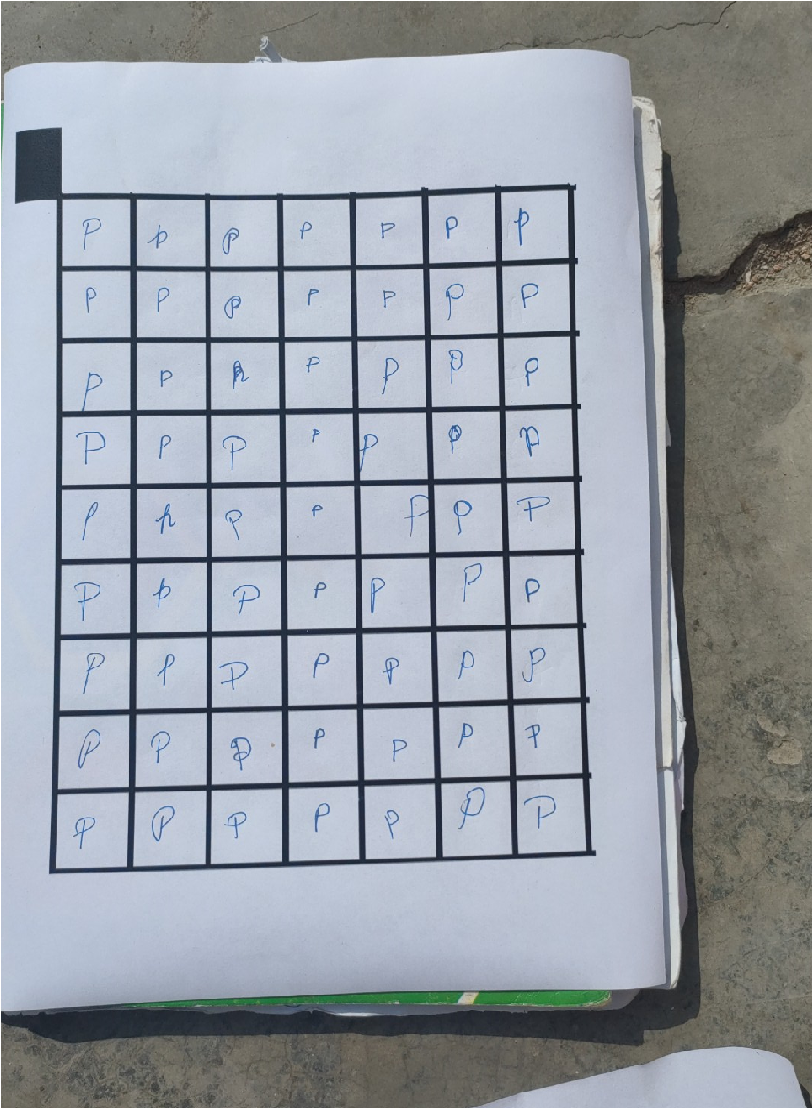 P p P P P P p
P P P P P P P
P P h P P P P
P P P P P P P
P h P P P P P
P p P P P P P
P P P P P P P
P P P P P P P
P P P P P P P